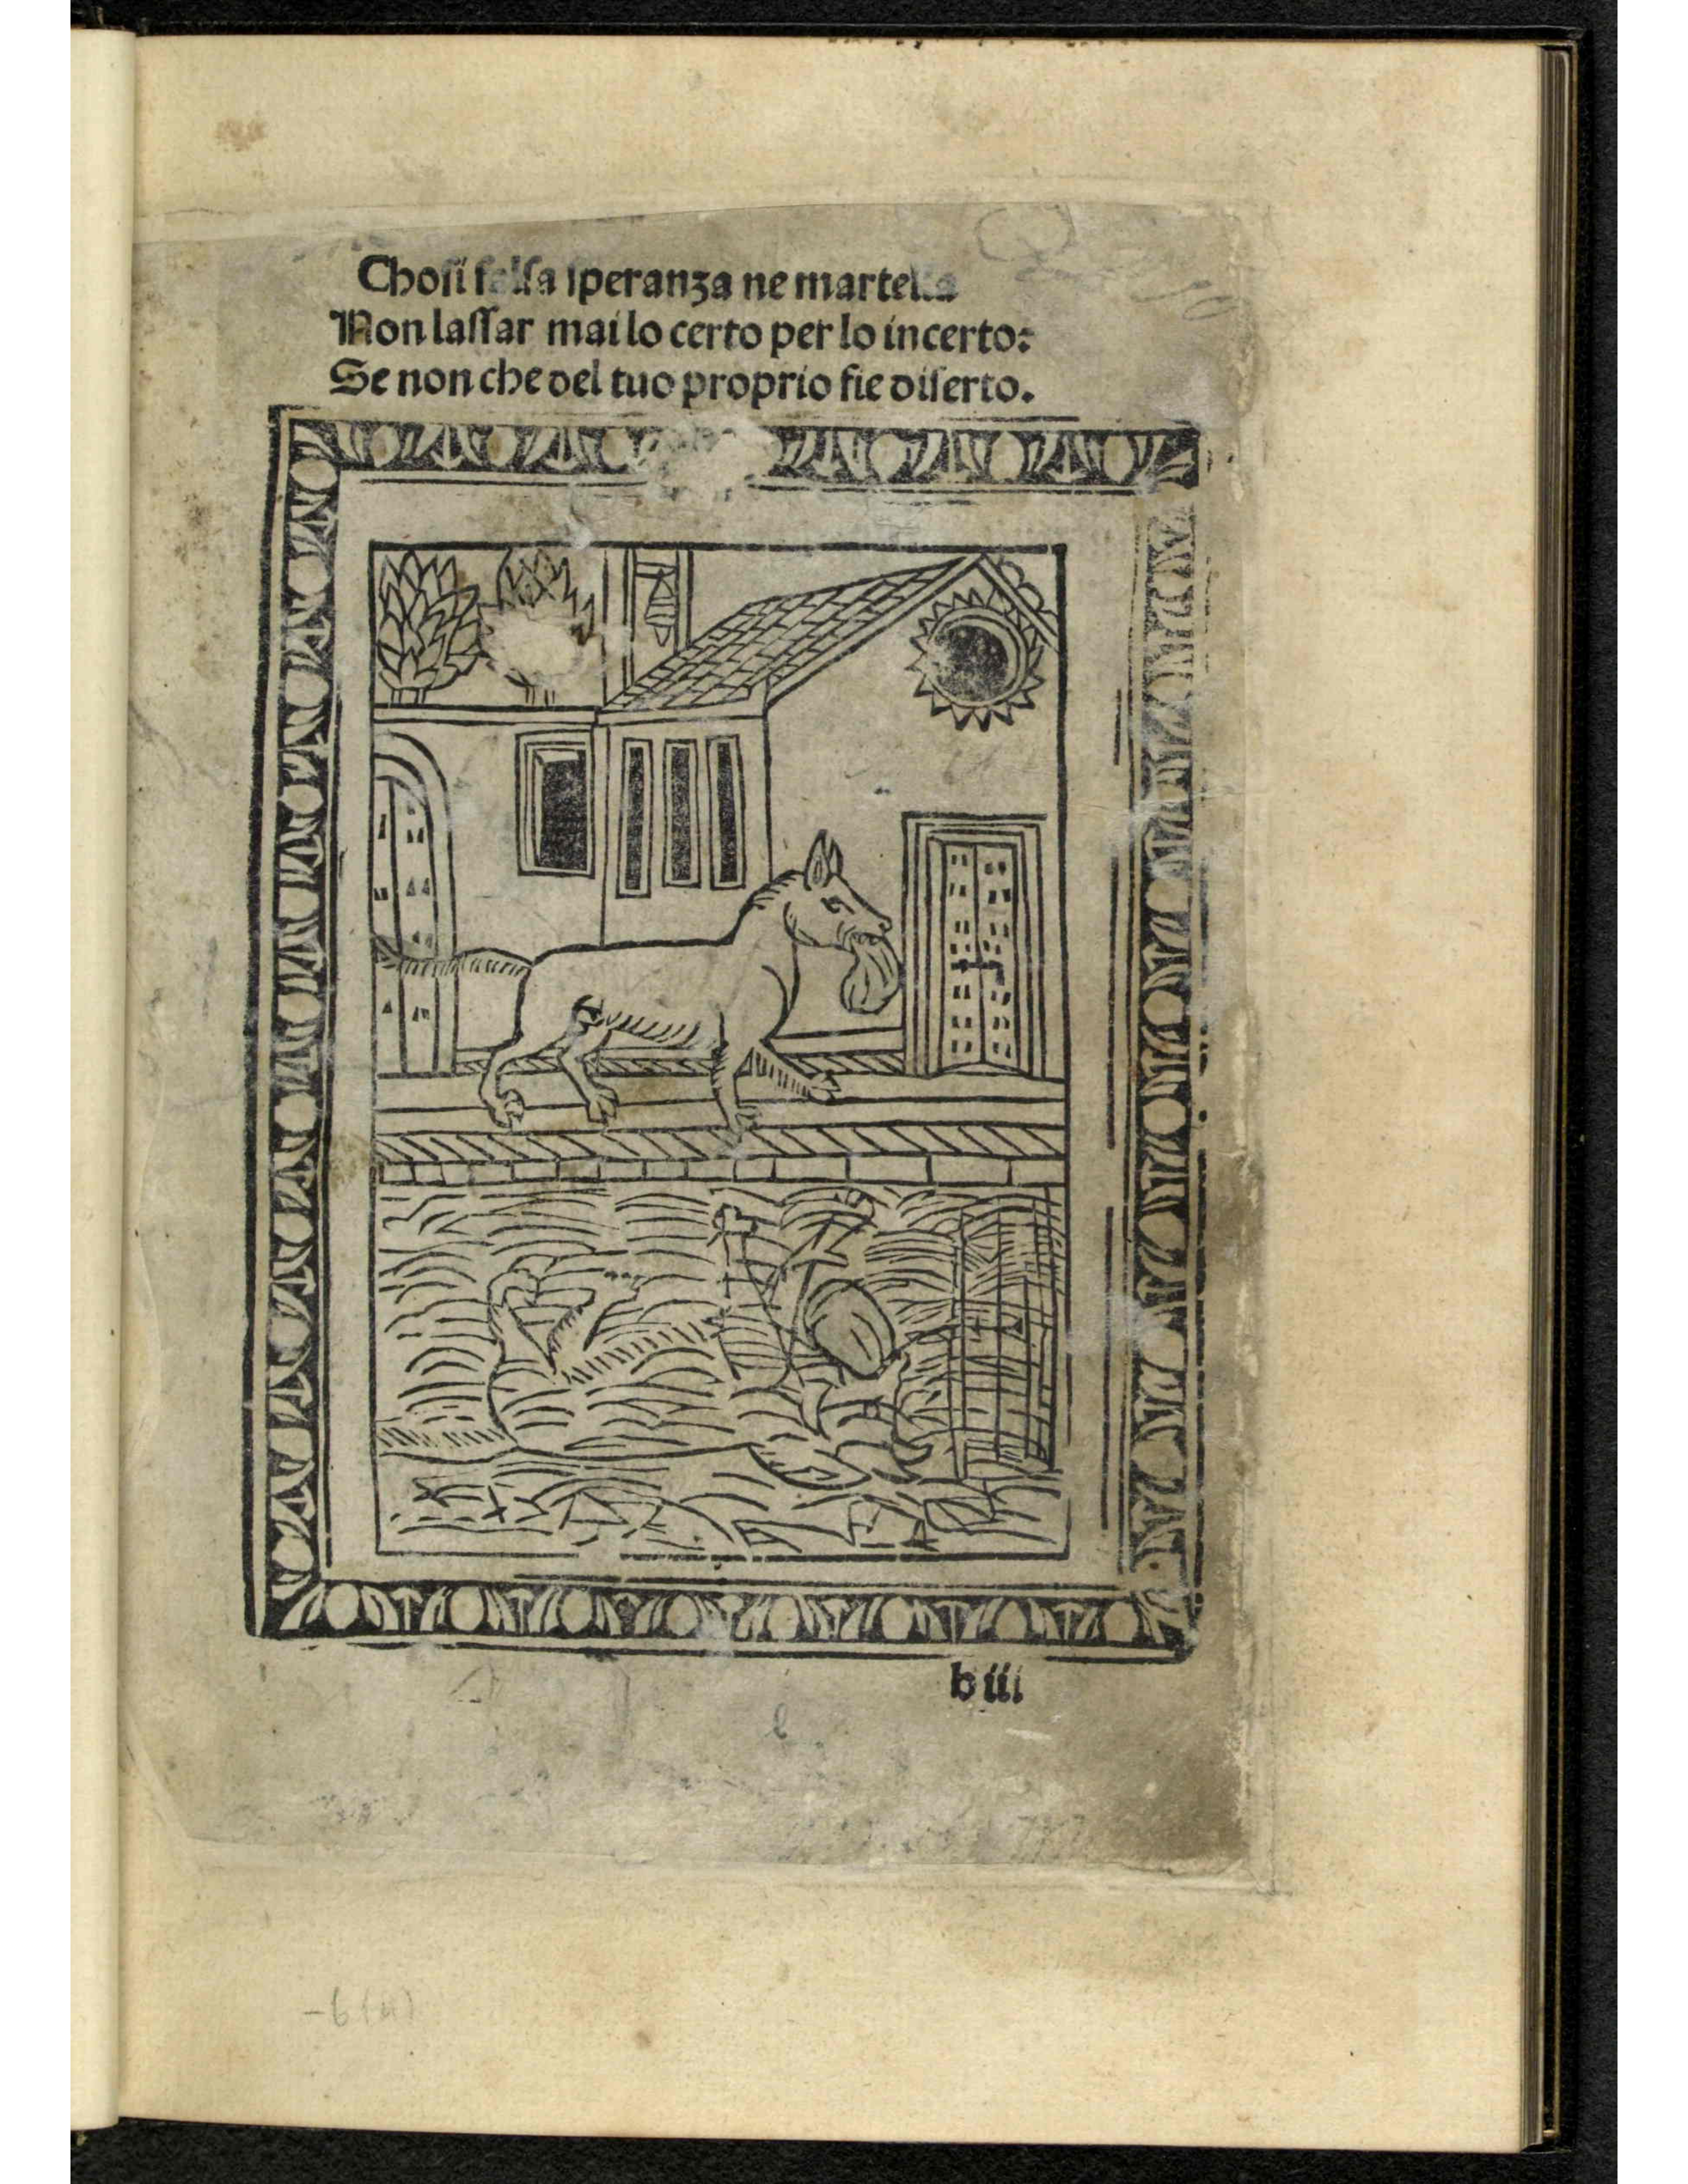 Choſi falſa ſperanza ne martella
Non laſſar mai lo certo per lo incerto:
Se non che del tuo proprio fie diſerto.
b iii